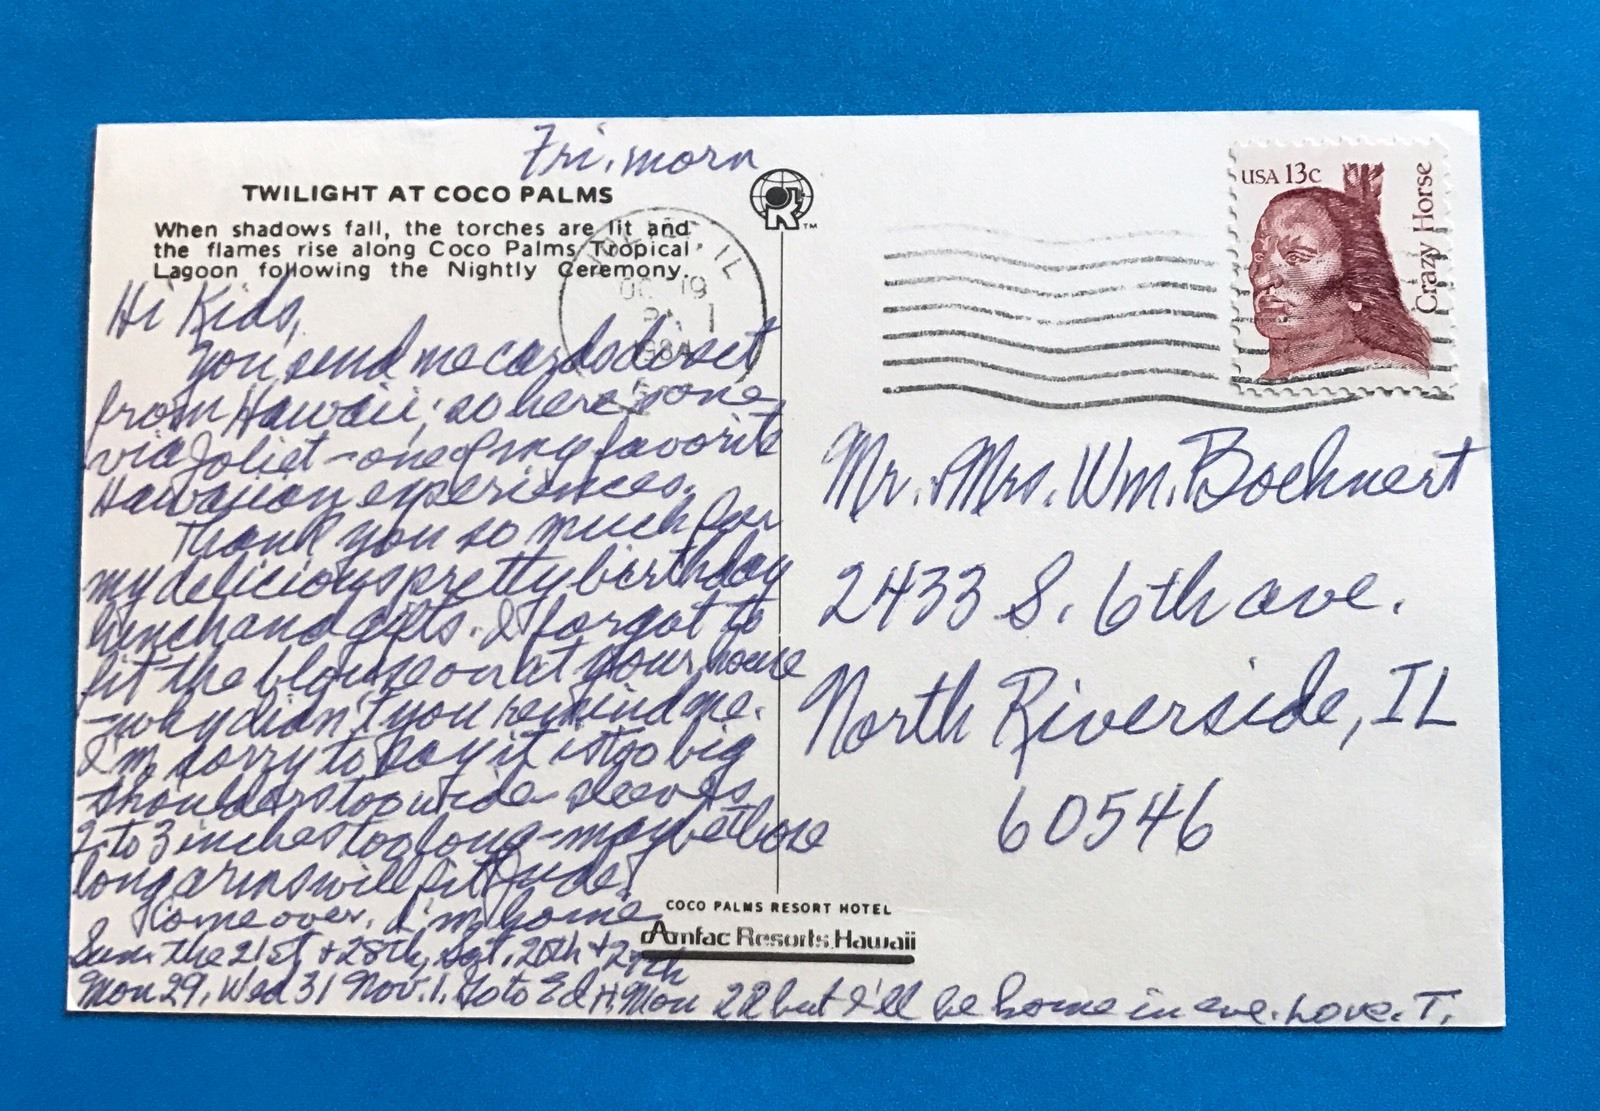 Fri. morn
TWILIGHT AT COCO PALMS
When shadows fall, the torches are lit and
the flames rise along Coco Palms Tropical
Lagoon following the Nightly Ceremony.
Hi Kids,
You send me cards direct
from Hawaii; so here's one
via Joliet - one of my favorite
Hawaiian experiences.
Thank you so much for
my delicious pretty birthday
lunch and gifts. I forgot to
fit the blouse on at your house
- why didn't you remind me.
I'm sorry to say it is too big
shoulders too wide - sleeves
2 to 3 inches too long - maybe those
long arms will fit Jude.
Come over. I'm home
Sun. the 21st + 28th, Sat. 20th + 27th
Mon 29, Wed 31 Nov. 1. Go to Ed H. Mon 22 but I'll be home in eve. Love. T.
COCO PALMS RESORT HOTEL
Amfac Resorts Hawaii
TM
IL
19
PM
1984
USA 13c
Crazy Horse
Mr. + Mrs. Wm. Boehnert
2433 S. 6th ave.
North Riverside, IL
60546